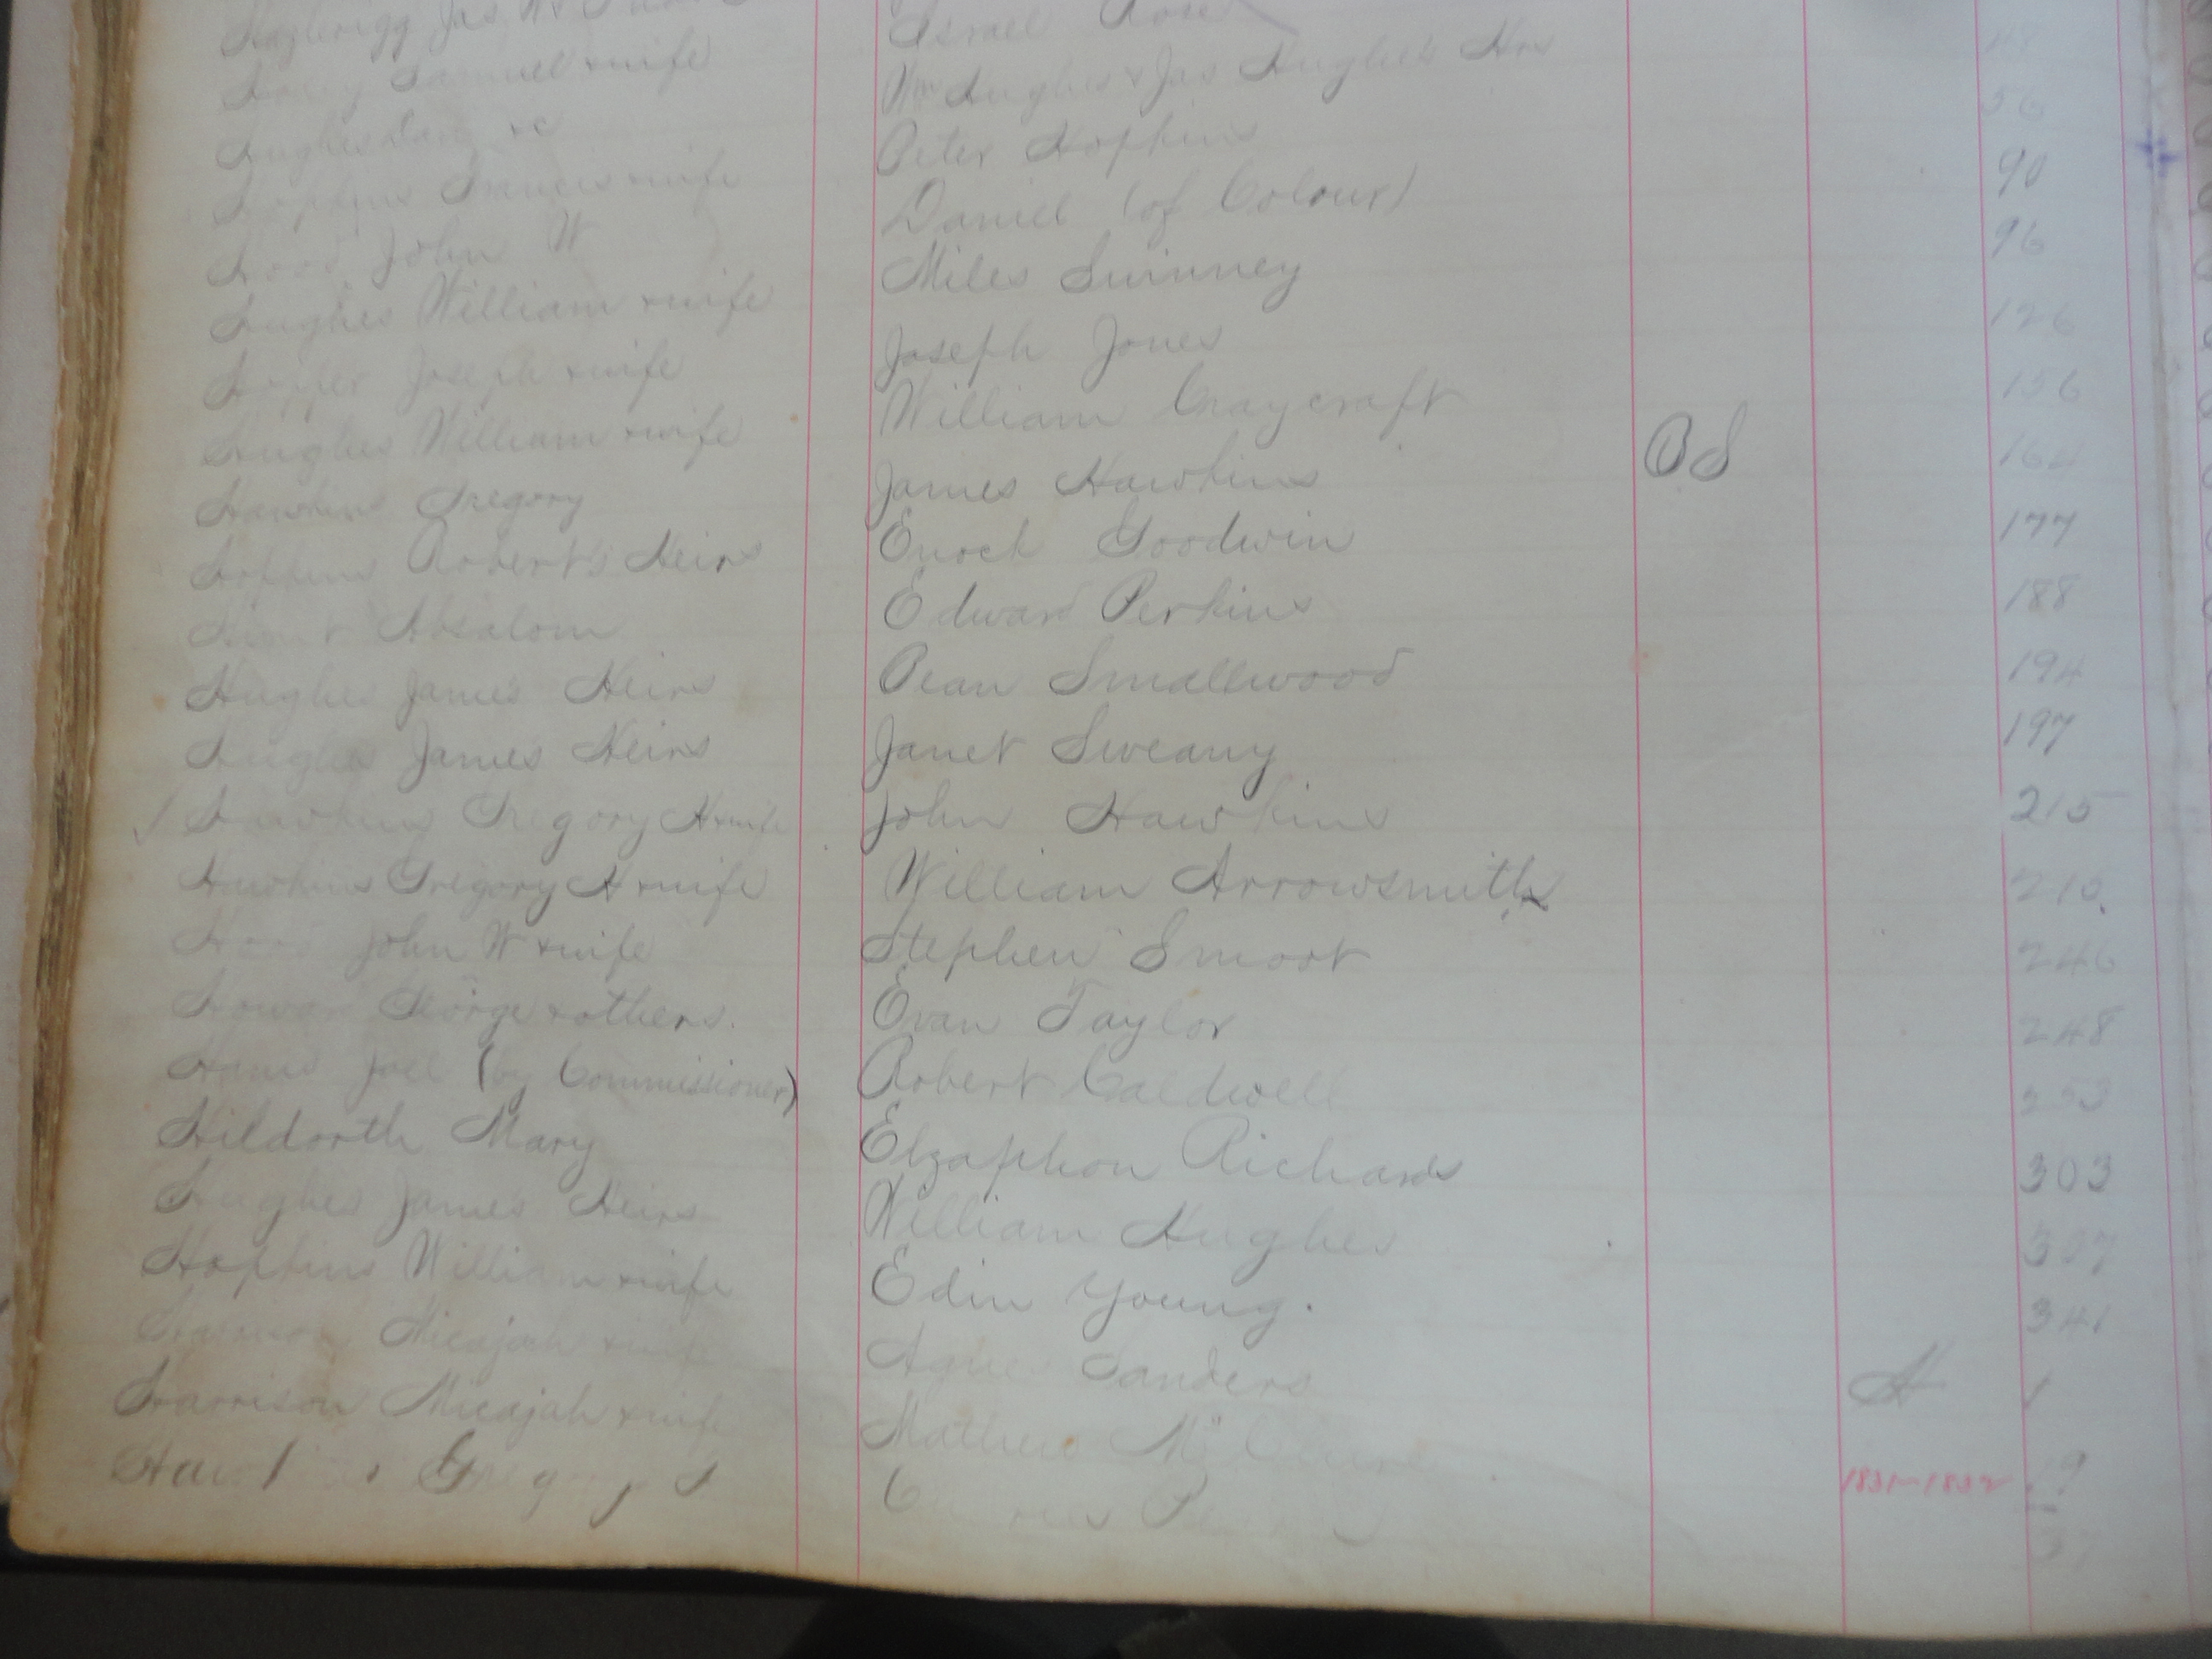 Hazlerigg Jas W & Israel Rose
Samuel & wife Wm Hughes & Jas Hughes Hrs 48
Hughes &c Peter Hopkins 56
Hopkins Francis & wife Daniel (of Colour) 90
Hood John W Miles Swinney 96
Hughes William & wife Joseph Jones 126
Hopper Joseph & wife William Craycraft 156
Hughes William & wife James Hawkins 164
Hawkins Gregory Enock Goodwin 177
Hopkins Robert's Heirs Edward Perkins 188
Absalom Bean Smallwood 194
Hughes James Heirs Janet Sweany 197
Hughes James Heirs John Hawkins 215
✓ Hawkins Gregory H & wife William Arrowsmith
Hawkins Gregory H & wife Stephen Smoot 246
Hood John W & wife Evan Taylor 248
Howard George & others. Robert Caldwell 253
Joel (by Commissioner) Elzaphon Richards 303
Hildorth Mary William Hughes 307
Hughes James Heirs Edin Young. 341
Hopkins William & wife Agnes Sanders A 1
Harrison Micajah & wife Mathew
Harrison Micajah & wife 1831-1832
Gregory